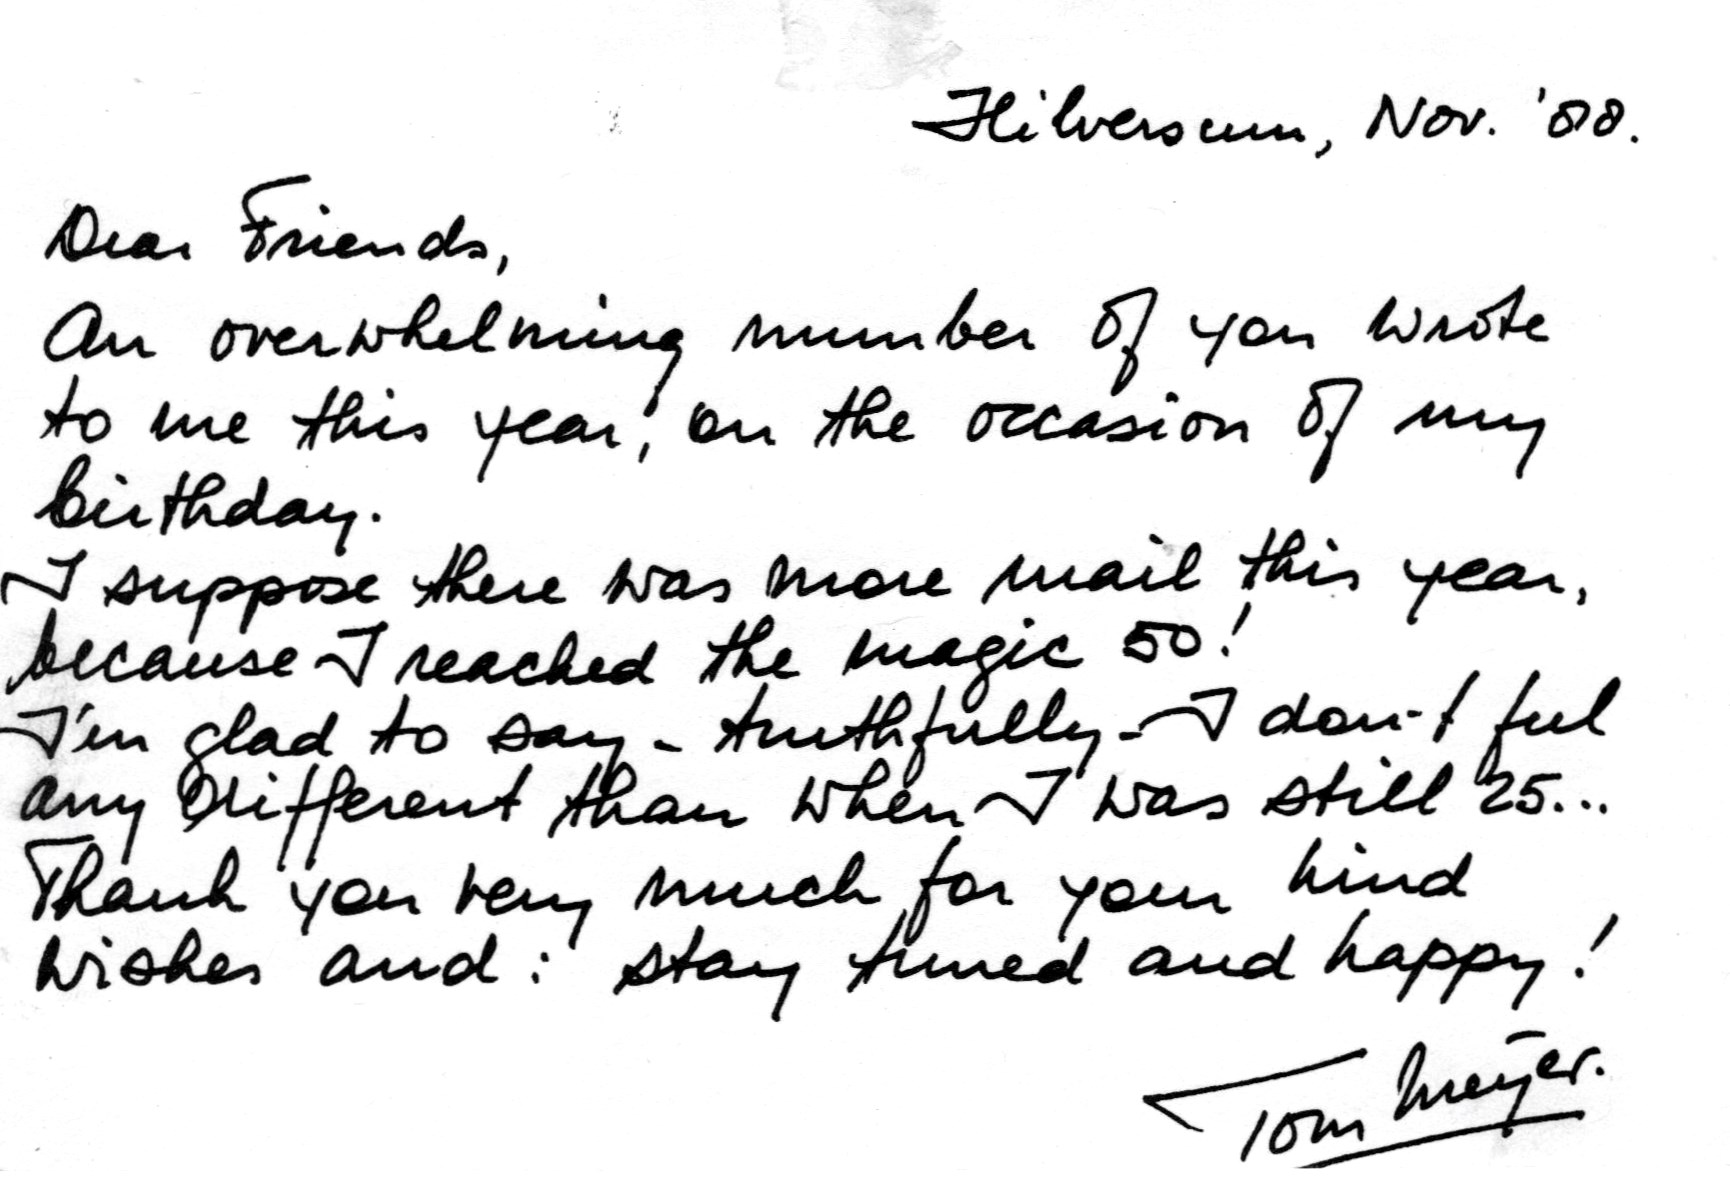 Hilversum, Nov. '88.
Dear Friends,
An overwhelming number of you wrote
to me this year, on the occasion of my
birthday.
I suppose there was more mail this year,
because I reached the magic 50!
I'm glad to say - truthfully - I don't feel
any different than when I was still 25...
Thank you very much for your kind
wishes and: stay tuned and happy!
Tom Meyer.